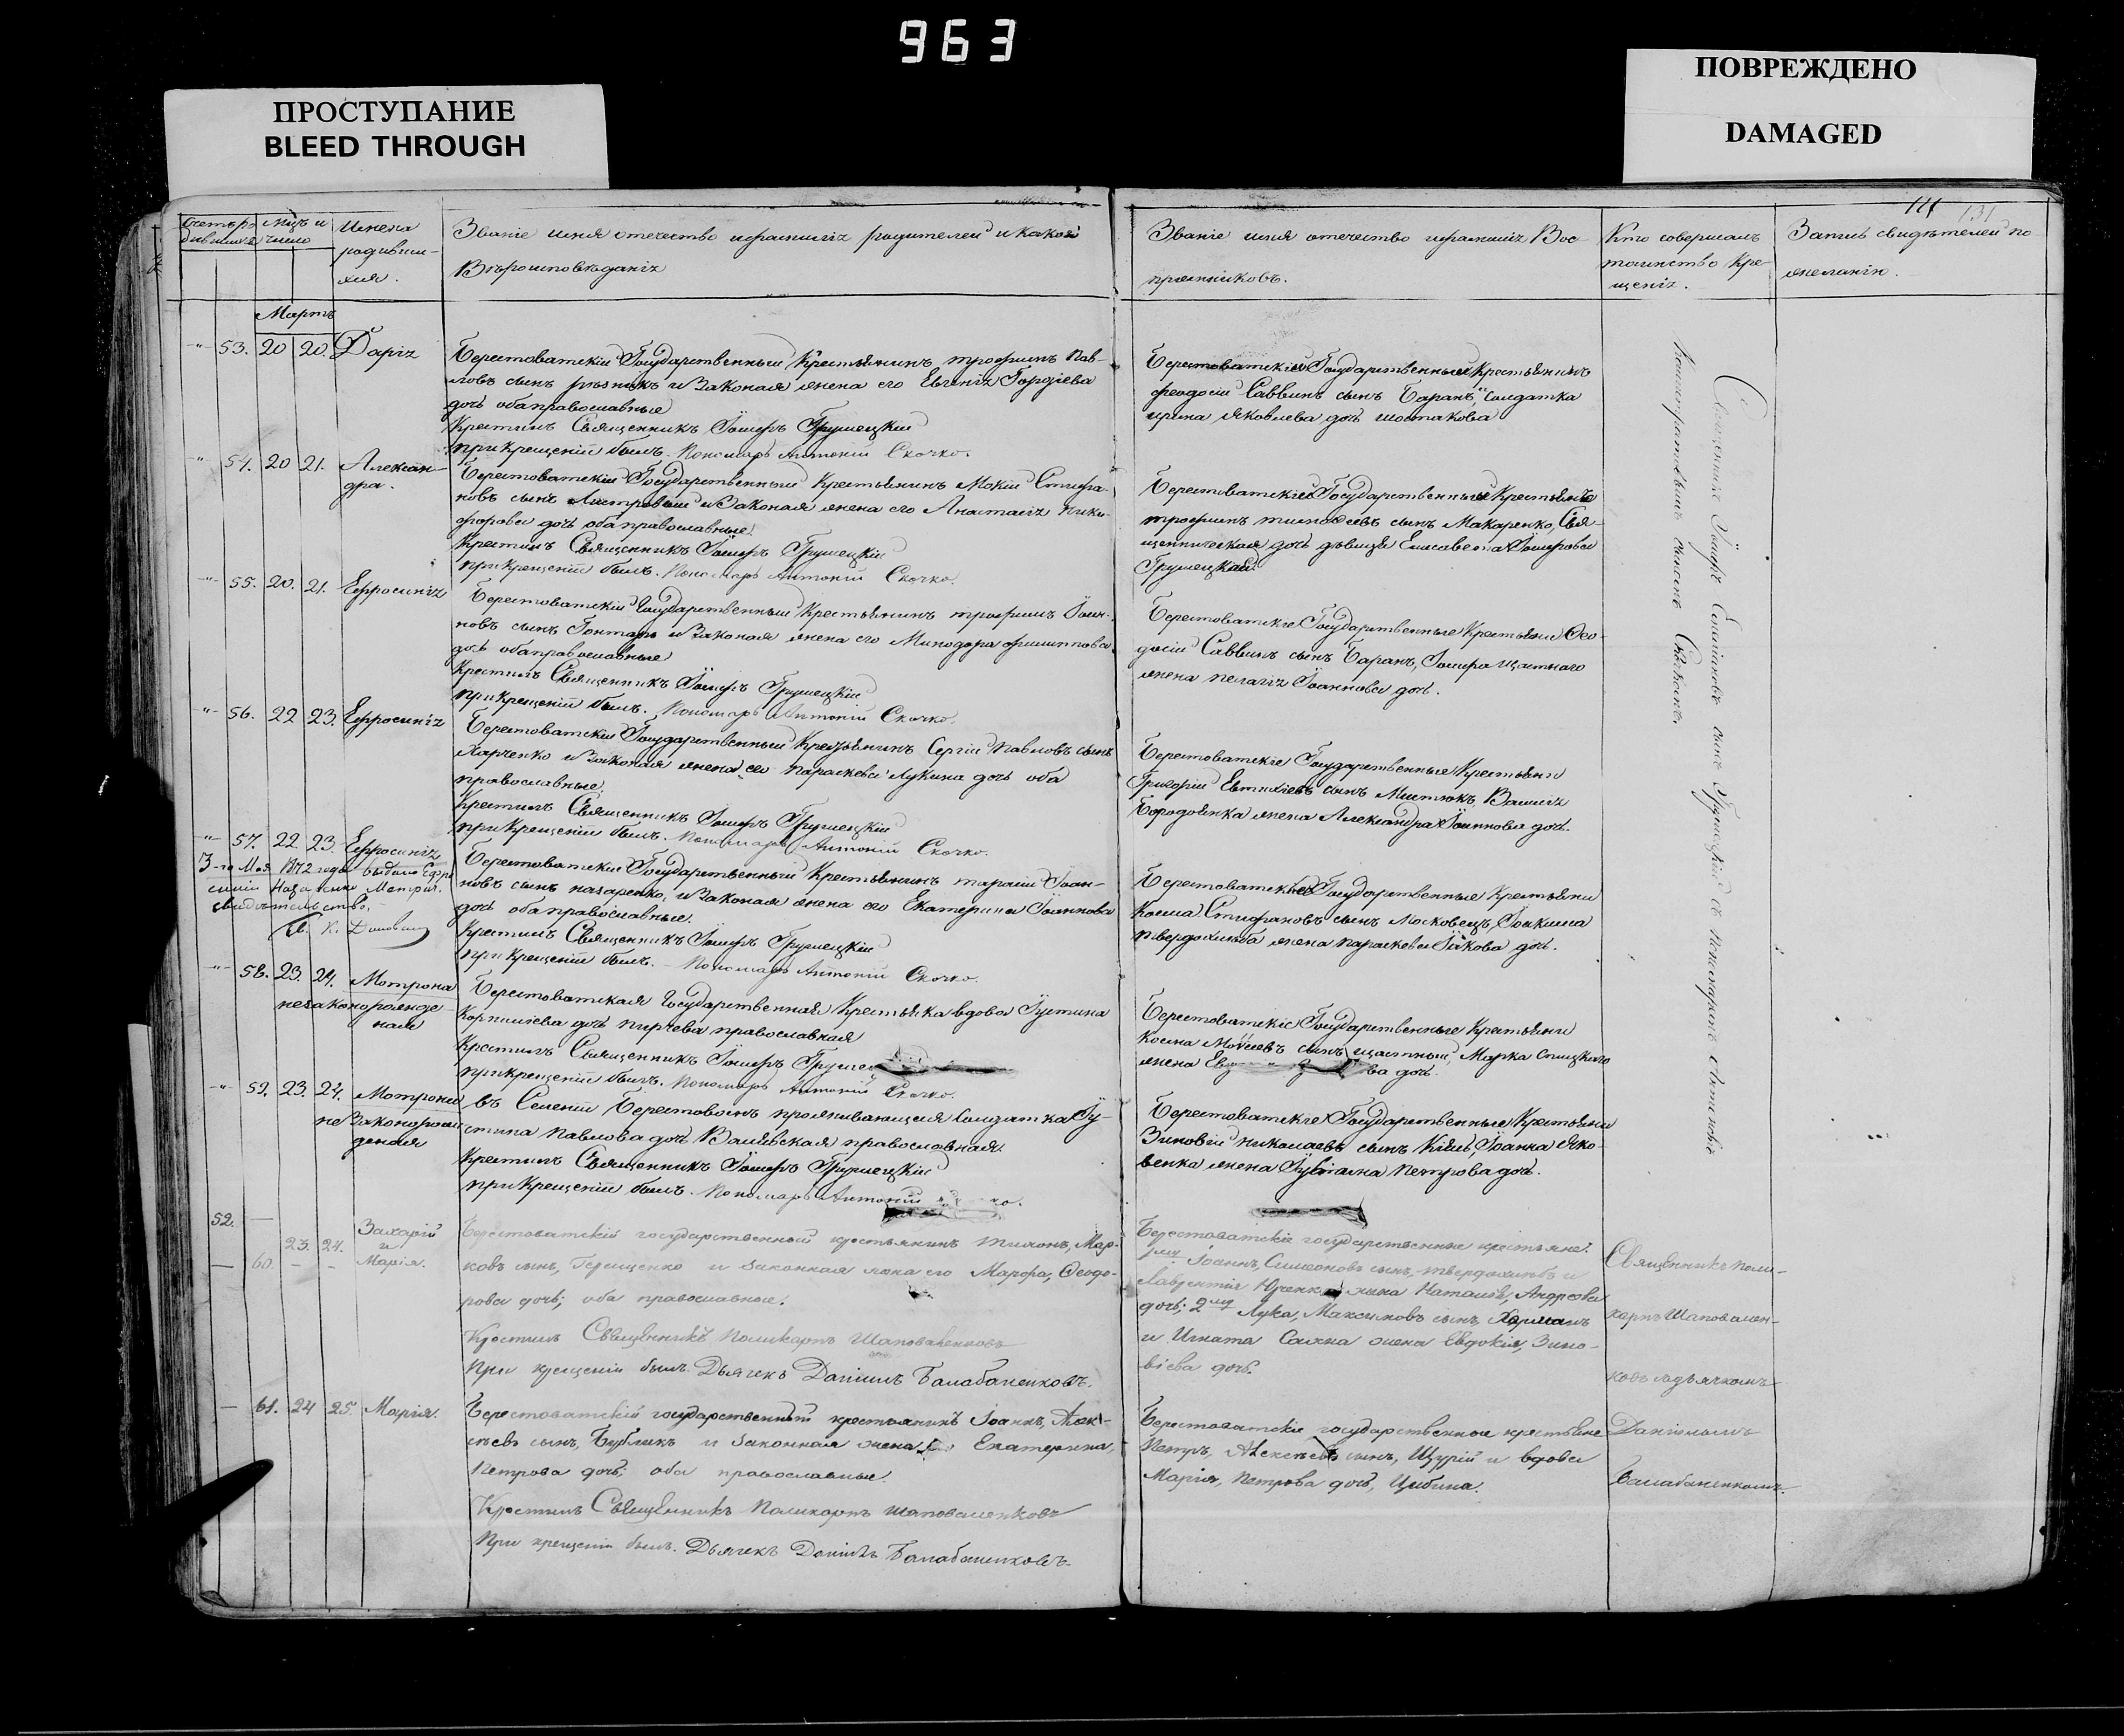 963
ПРОСТУПАНИЕ
BLEED THROUGH
ПОВРЕЖДЕНО
DAMAGED
131
мцъ и число
Имена родивших-
хся.
Званіе имя отечество ифамиліz родителей икакой
Вѣроисповѣданіz
Званіе имя отечество ифамиліz Вос-
пріемниковъ.
Кто совершалъ
таинство Кре-
щеніz.
Запись свидѣтелей по
желанію.
Мартъ
53. 20 20. Даріz
Берестоватскій Государственный Крестьянинъ трофимъ Пав-
ловъ сынъ рѣзникъ и Законая жена его Евгеніz Гордіева
дочь обаправославные
Крестилъ Священникъ Іосифъ Грушецкій
прикрещеніи былъ. Пономарь Антоній Скочко.
Берестоватскіе Государственные Крестьянинъ
феодосій Саввинъ сынъ Баранъ, Солдатка
ирина яковлева дочь шостакова
54. 20 21. Алексан-
дра.
Берестоватскій Государственный Крестьянинъ Мокій Стифа-
новъ сынъ и Законая жена его Анастасіz ники-
форова дочь обаправославные
Крестилъ Священникъ Іосифъ Грушецкій
прикрещеніи былъ. Пономарь Антоній Скочко.
Берестоватскіе Государственные Крестьянъ
трофимъ тимофеевъ сынъ Макаренко, Свя-
щенническая дочь дѣвица Елисавета Іосифова
Грушецкая
55. 20. 21. Ефросиніz
Берестоватскій Государственный Крестьянинъ трофимъ Іоан-
новъ сынъ Гонтарь и Законая жена его Минодора филиппова
дочь обаправославные
Крестилъ Священникъ Іосифъ Грушецкій
прикрещеніи былъ. Пономарь Антоній Скочко.
Берестоватскіе Государственные Крестьяни Ѳео-
досій Саввинъ сынъ Баранъ, Іосифа щастного
жена пелагіz Іоаннова дочь.
56. 22 23. Ефросиніz
Берестоватскій Государственный Крестьянинъ Сергій Павловъ сынъ
Харченко и Законая жена его параскева Лукина дочь оба
православные
Крестилъ Священникъ Іосифъ Грушецкій
прикрещеніи былъ. Пономарь Антоній Скочко.
Берестоватскіе Государственные Крестьяни
Григорій Евтихіевъ сынъ Василіz
Бородавка жена Александра Іоаннова дочь.
57. 22. 23. Ефросиніz
3-го Мая 1872 года выдано Ефро
синіи Назаренко Метрич.
свидѣтельство.
Берестоватскій Государственный Крестьянинъ тарасій Іоан-
новъ сынъ назаренко, и Законая жена его Екатерина Іоаннова
дочь обаправославные.
Крестилъ Священникъ Іосифъ Грушецкій
при Крещеніи былъ. Пономарь Антоній Скочко.
Берестоватскіе Государственные Крестьяни
Косма Стифановъ сынъ Московецъ, Іоакима
твердохлѣба жена параскева Іакова дочь.
58. 23. 24. Мотрона
незаконорожде-
ная
Берестоватская Государственная Крестьянка вдова Іустина
Корниліева дочь православная
Крестилъ Священникъ Іосифъ Грушец
прикрещеніи былъ. Пономарь Антоній Скочко.
Берестоватскіе Государственные Крестьяни
Косма Моѵсіевъ сынъ щастный, Марка
жена ва дочь.
59. 23. 24. Мотрона
незаконорож
деная
въ Селеніи Берестовомъ проживающеця Солдатка Іу-
стина Павлова дочь православная.
Крестилъ Священникъ Іосифъ Грушецкій
прикрещеніи былъ. Пономарь Антоній ко.
Берестоватскіе Государственные Крестьяни
Зиновій николаевъ сынъ Іоанна яко-
венка жена Іуліанна Петрова дочь.
Священникъ Іосифъ сынъ Грушецкій съ пономаремъ Антоніемъ
сыномъ Скочкомъ.
52.
60. 23. 24. Захарій
и
Марія.
Берестоватскій государственный крестьянинъ Тихонъ, Мар-
ковъ сынъ, Герещенко и законная жена его Марфа, Ѳеодо-
рова дочь; оба православные.
Крестилъ Священникъ Поликарпъ Шаповаленковъ
При крещеніи былъ. Дьячекъ Даніилъ Балабаненковъ.
Берестоватскіе государственные крестьяне:
Іоаннъ, Симеоновъ сынъ, твердохлѣбъ и
Лаврентія жена Наталія, Андреева
дочь; 2й Лука, Максимовъ сынъ,
и Игната жена Евдокія, Зино-
віева дочь.
Священникъ Поли-
карпъ Шаповален-
ковъ съдьячкомъ
Даніиломъ
Балабаненкомъ.
61. 24 25. Марія.
Берестоватскій государственный крестьянинъ Іоаннъ, Алек-
сѣевъ сынъ, Бубликъ и законная жена его Екатерина,
Петрова дочь; оба православные.
Крестилъ Священникъ Поликарпъ Шаповаленковъ
При крещеніи былъ. Дьячекъ Даніилъ Балабаненковъ.
Берестоватскіе государственные крестьяне
Петръ, Алексѣевъ сынъ, Щурій и вдова
Марія, Петрова дочь, Цибина.